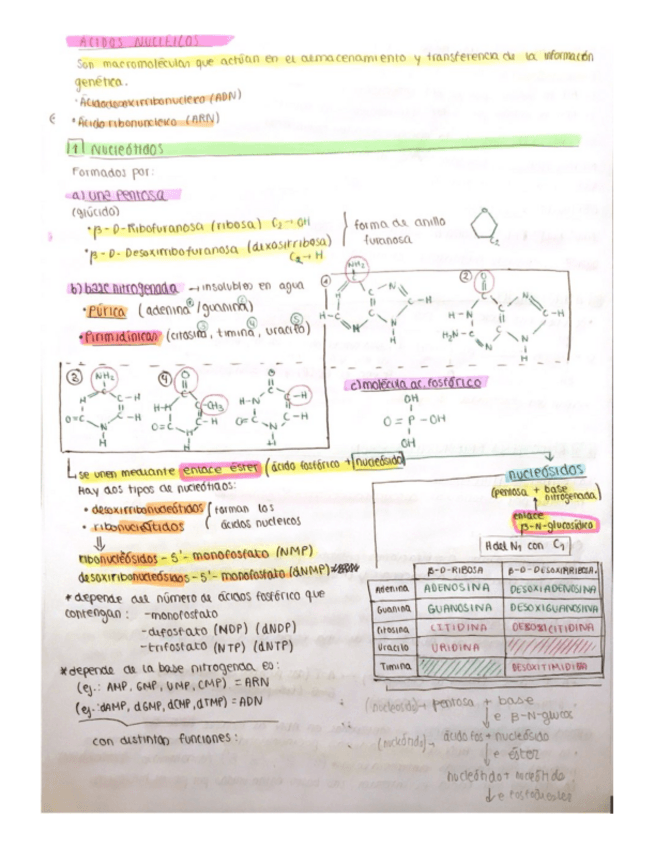 ÁCIDOS NUCLEICOS
Son macromoléculas que actúan en el almacenamiento y transferencia de la información
genética.
· Ácidodesoxirribonucleico (ADN)
· Ácido ribonucleico (ARN)
1 Nucleótidos
Formados por:
a) una pentosa
(glúcido)
· β-D-Ribofuranosa (ribosa) C₂→OH
· β-D-Desoxirribofuranosa
C₂→H
forma de anillo
furanosa
C₂
b) base nitrogenada → insolubles en agua
· Púrica (adenina①/guanina②)
· Pirimidínicas (citosina③, timina④, uracilo⑤)
①
NH₂
②
O
H₂N-C
③
NH₂
④
O
CH₃
c) molécula ac. fosfórico
OH
O = P - OH
OH
se unen mediante enlace éster (ácido fosfórico + nucleósido)
Hay dos tipos de nucleótidos:
· desoxirribonucleótidos
· ribonucleótidos
forman los
ácidos nucleicos
ribonucleósidos - 5' - monofosfato (NMP)
desoxirribonucleósidos - 5' - monofosfato (dNMP)
* depende del número de ácidos fosfórico que
contengan: -monofosfato
-difosfato (NDP) (dNDP)
-trifosfato (NTP) (dNTP)
* depende de la base nitrogenda es:
(ej.: AMP, GMP, UMP, CMP) = ARN
(ej.: dAMP, dGMP, dCMP, dTMP) = ADN
con distintas funciones:
nucleósidos
(pentosa + base
nitrogenada)
enlace
β-N-glucosídico
H del N₁ con C₁
β-D-RIBOSA
β-D-DESOXIRRIBOSA.
Adenina ADENOSINA DESOXIADENOSINA
Guanina GUANOSINA DESOXIGUANOSINA
Citosina CITIDINA DESOXICITIDINA
Uracilo URIDINA
Timina DESOXITIMIDINA
(nucleosido)→ pentosa + base
↓ e β-N-glucos
(nucleótido)→ ácido fos + nucleósido
↓ e éster
nucleótido + nucleótido